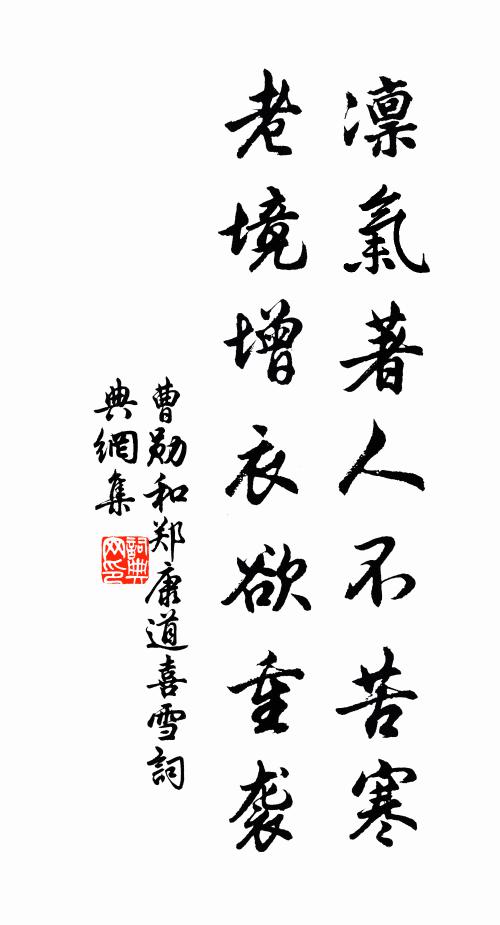 凛氣著人不苦寒
老境增衣欲重袭
曹勋和郑康道喜雪詞
典網集
詞典网印